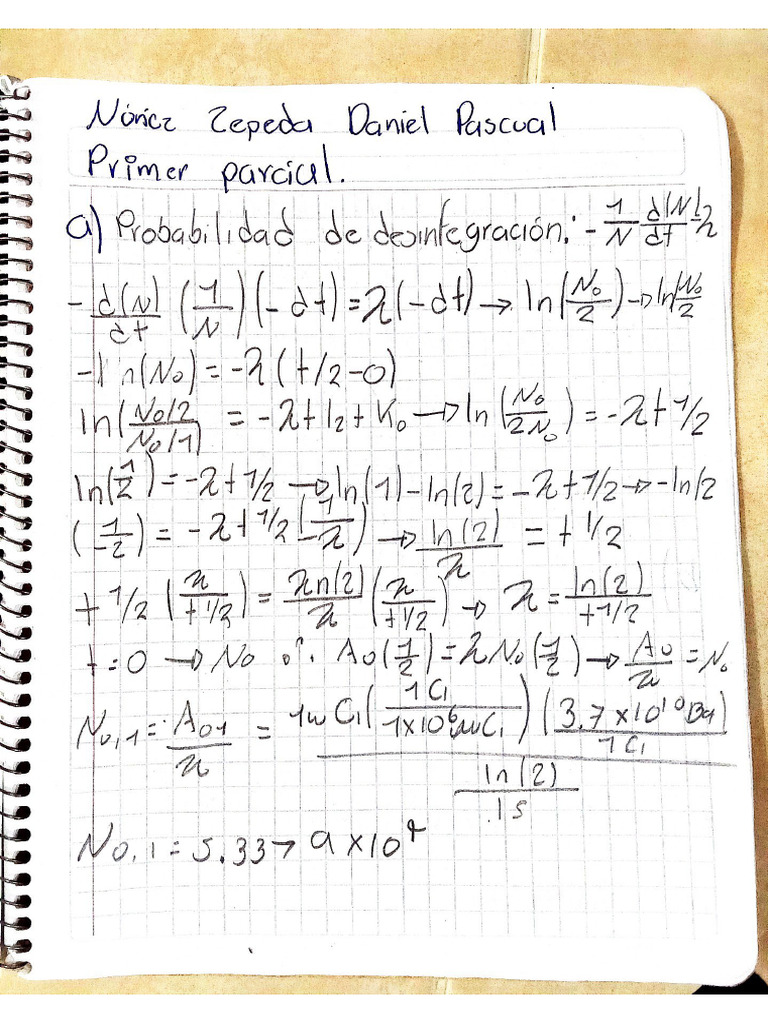 Núñez Zepeda Daniel Pascual
Primer parcial.
a) Probabilidad de desintegración: - 1/N d(N)/dt = λ
- d(N)/dt (1/N) (-dt) = λ(-dt) → ln(N₀/2) → ln(N₀/2
- ln(N₀) = -λ(t/2 - 0)
ln((N₀/2)/(N₀/1)) = -λt/2 + K₀ → ln(N₀/2N₀) = -λt 1/2
ln(1/2) = -λt 1/2 → ln(1) - ln(2) = -λt 1/2 → -ln(2
(1/-λ) = -λt 1/2 (1/-λ) → ln(2)/λ = t 1/2
t 1/2 (λ/t 1/2) = λn(2)/λ (λ/t 1/2) → λ = ln(2)/t 1/2
t = 0 → N₀ ∴ A₀(1/λ) = λN₀(1/λ) → A₀/λ = N₀
N₀,1 = A₀1/λ = 1μCi (1Ci/1×10⁶μCi) (3.7×10¹⁰Bq/1Ci) / (ln(2)/1s)
N₀,1 = 5.337 9×10⁴